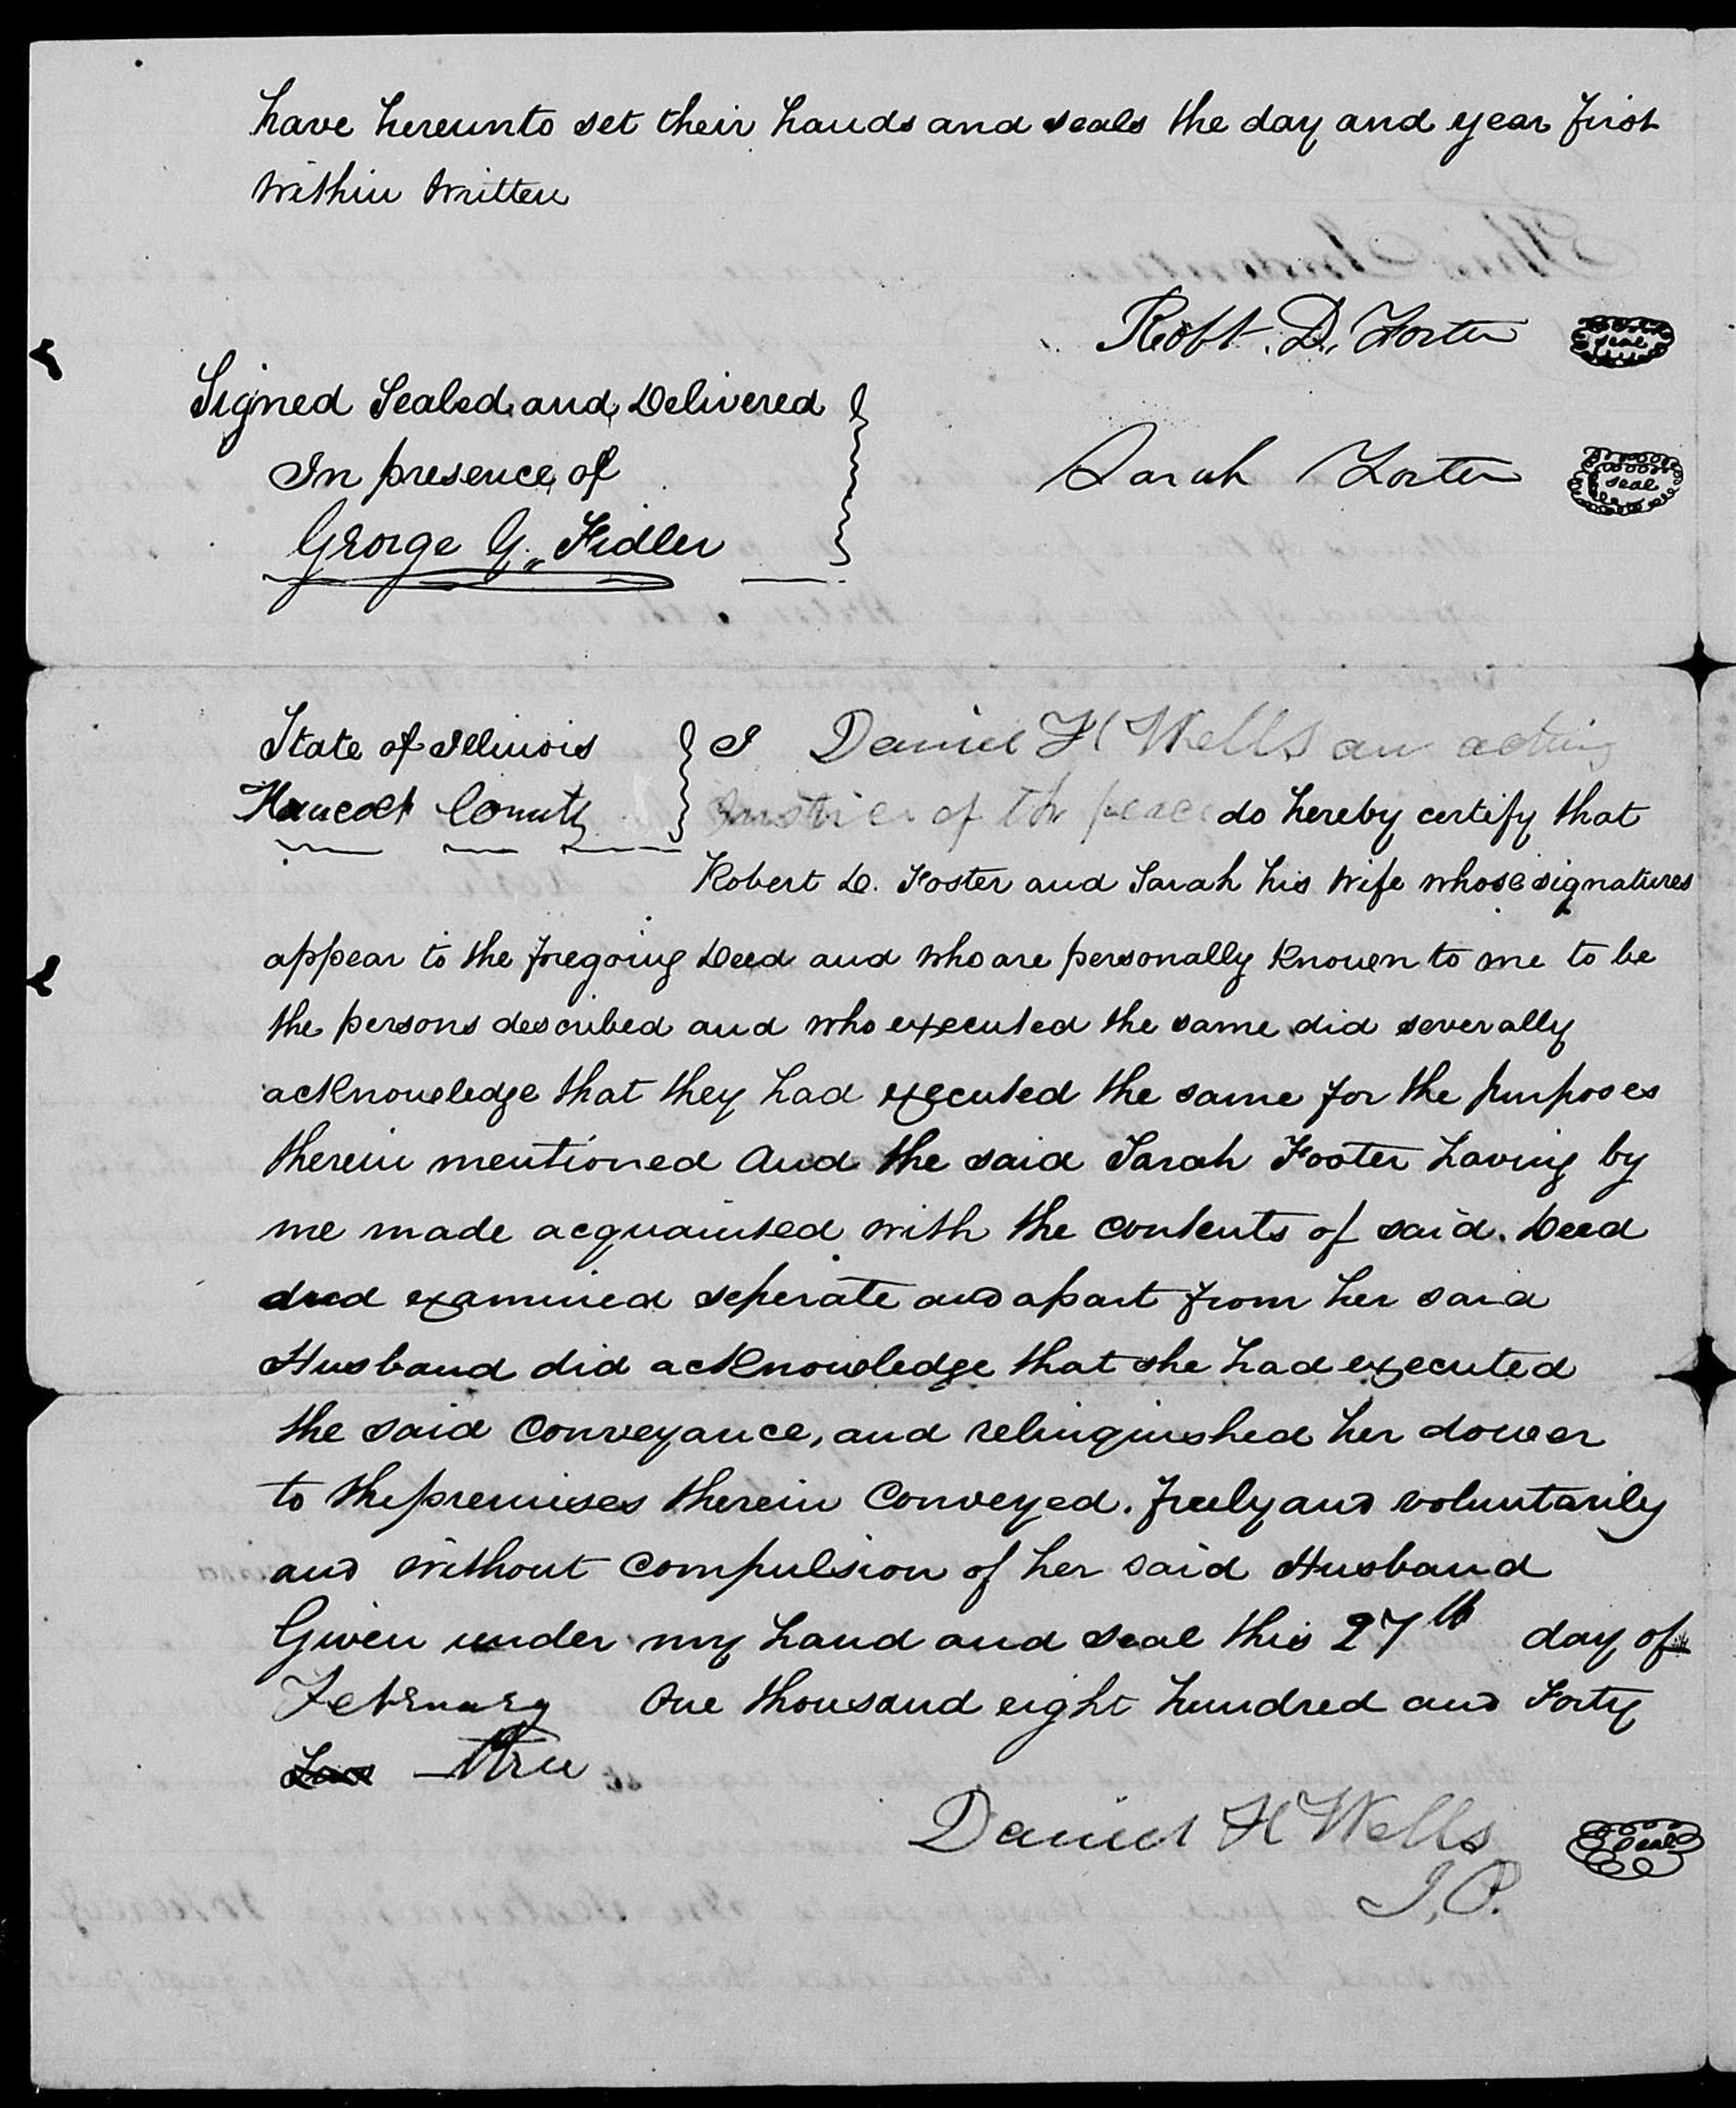 have hereunto set their hands and seals the day and year first
within written
Robt. D. Foster seal
Signed Sealed and Delivered
In presence of
Sarah Foster seal
George G. Fidler
State of Illinois
Hancock County
I Daniel H Wells an acting
Justice of the peace do hereby certify that
Robert D. Foster and Sarah his wife whose signatures
appear to the foregoing Deed and who are personally known to me to be
the persons described and who executed the same did severally
acknowledge that they had executed the same for the purposes
therein mentioned And the said Sarah Foster having by
me made acquainted with the contents of said Deed
and examined seperate and apart from her said
Husband did acknowledge that she had executed
the said Conveyance, and relinquished her dower
to the premises therein Conveyed. freely and voluntarily
and without Compulsion of her said Husband
Given under my hand and seal this 27th day of
February One thousand eight hundred and Forty
three
Daniel H Wells seal
J.P.